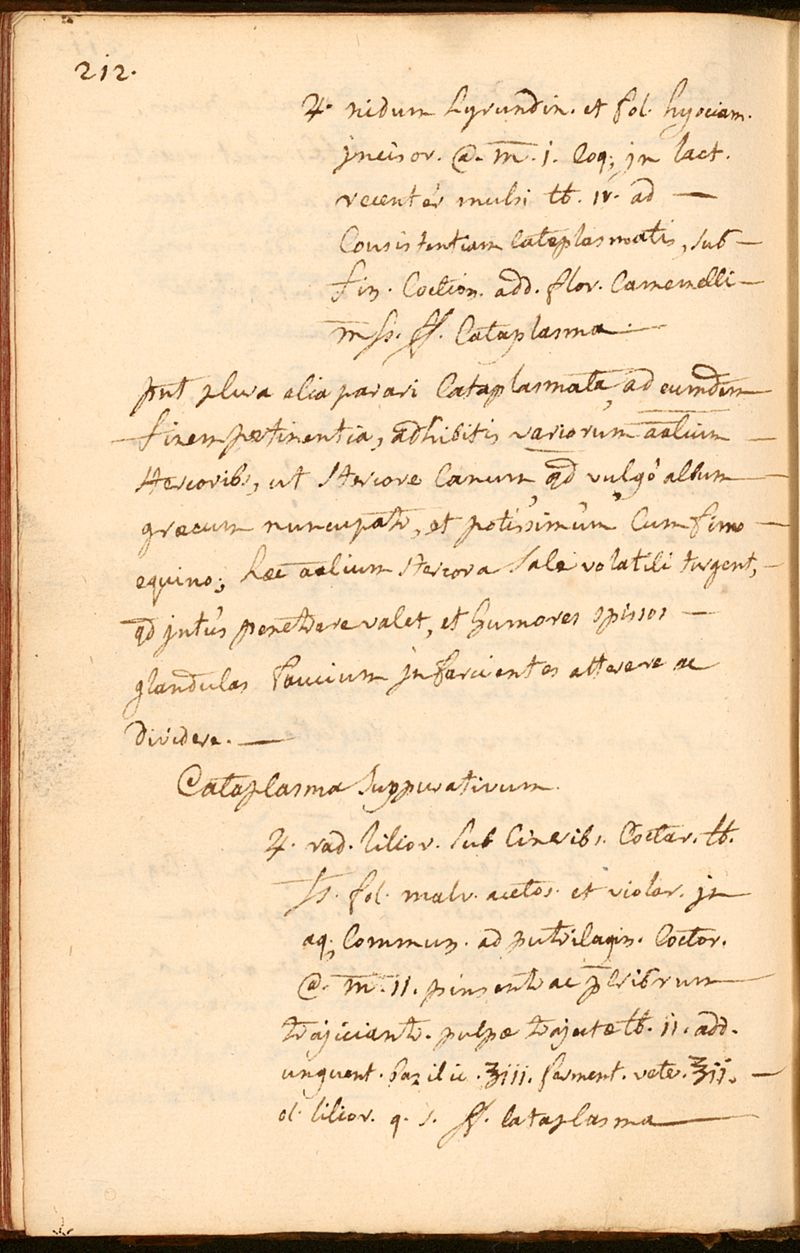 212.
♃. nidum hyrundin. et fol. hyociam.
jncisor. @. m̄. j. Coq; jn lact.
recentèr mulsi ℔. ıv. ad —
Consistentiam Cataplasmatis, sub —
fin. Coction. add. flor. Camemelli —
m̄ ſs. ff. Cataplasma. —
pn̄t plura alia parari Cataplasmata, ad eumdem
finem pertinentia, adhibitis variorum aa̅lium —
stercorib;, ut stercore Canum, qd vulgò album —
græcum nuncupatr, et potissimùm Cum fimo —
equino; hæc aa̅lium stercora Sale volatili turgent, —
qd jntùs penetrare valet, et humores spissos —
glandulas faucium jnfarcientes atterere ac
dividere. —
Cataplasma Suppurativum.
♃. rad. lilior. sub Cinerib;. Coctar. ℔.
ſs. fol. malv. acetos. et violar. jn
aq; Commun. ad putrilagin. Coctor.
@. m̄. ıı. pinsentr ac p cribrum
trajiciantr. pulpæ trajectæ ℔. ıı. add.
unguent. bazilic. ℥iii. ferment. vete. ℥ii. —
ol. lilior. q. s. ff. Cataplasma —